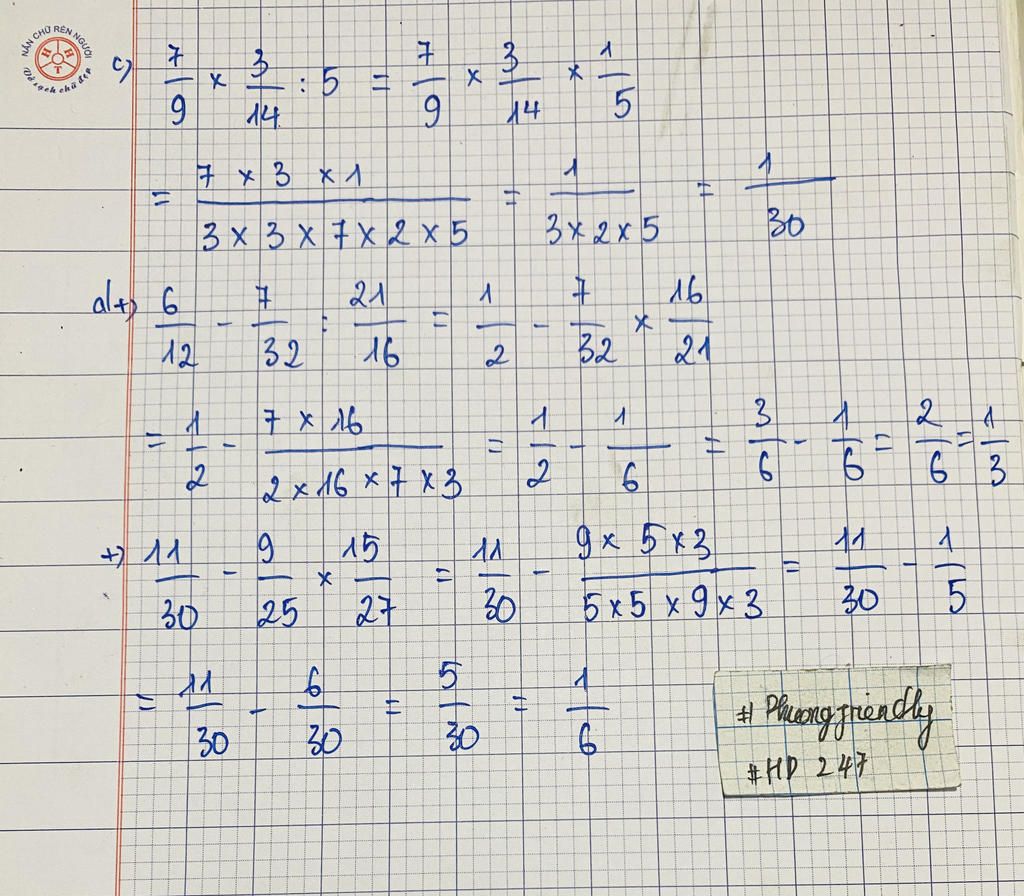 NẮN CHỮ RÈN NGƯỜI
H H T
Vở sạch chữ đẹp
c) 7/9 × 3/14 : 5 = 7/9 × 3/14 × 1/5
= (7 × 3 × 1)/(3 × 3 × 7 × 2 × 5) = 1/(3 × 2 × 5) = 1/30
d) +) 6/12 - 7/32 : 21/16 = 1/2 - 7/32 × 16/21
= 1/2 - (7 × 16)/(2 × 16 × 7 × 3) = 1/2 - 1/6 = 3/6 - 1/6 = 2/6 = 1/3
+) 11/30 - 9/25 × 15/27 = 11/30 - (9 × 5 × 3)/(5 × 5 × 9 × 3) = 11/30 - 1/5
= 11/30 - 6/30 = 5/30 = 1/6
# Phuongfriendly
# HD 247